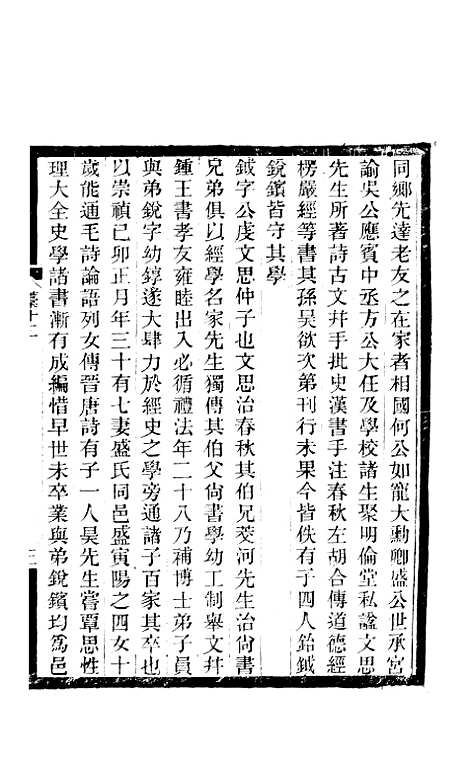 同鄉先達老友之在家者相國何公如寵大勳卿盛公世承宮
諭吳公應賓中丞方公大任及學校諸生聚明倫堂私諡文思
先生所著詩古文幷手批史漢書手注春秋左胡合傳道德經
楞嚴經等書其孫吳欲次第刊行未果今皆佚有子四人鉿鉞
銳鑌皆守其學
鉞字公虔文思仲子也文思治春秋其伯兄茭河先生治尙書
兄弟俱以經學名家先生獨傳其伯父尙書學幼工制舉文幷
鍾王書孝友雍睦出入必循禮法年二十八乃補博士弟子員
與弟銳字幼錞遂大肆力於經史之學旁通諸子百家其卒也
以崇禎己卯正月年三十有七妻盛氏同邑盛寅陽之四女十
歲能通毛詩論語列女傳晉唐詩有子一人昊先生嘗覃思性
理大全史學諸書漸有成編惜早世未卒業與弟銳鑌均爲邑
十二
三